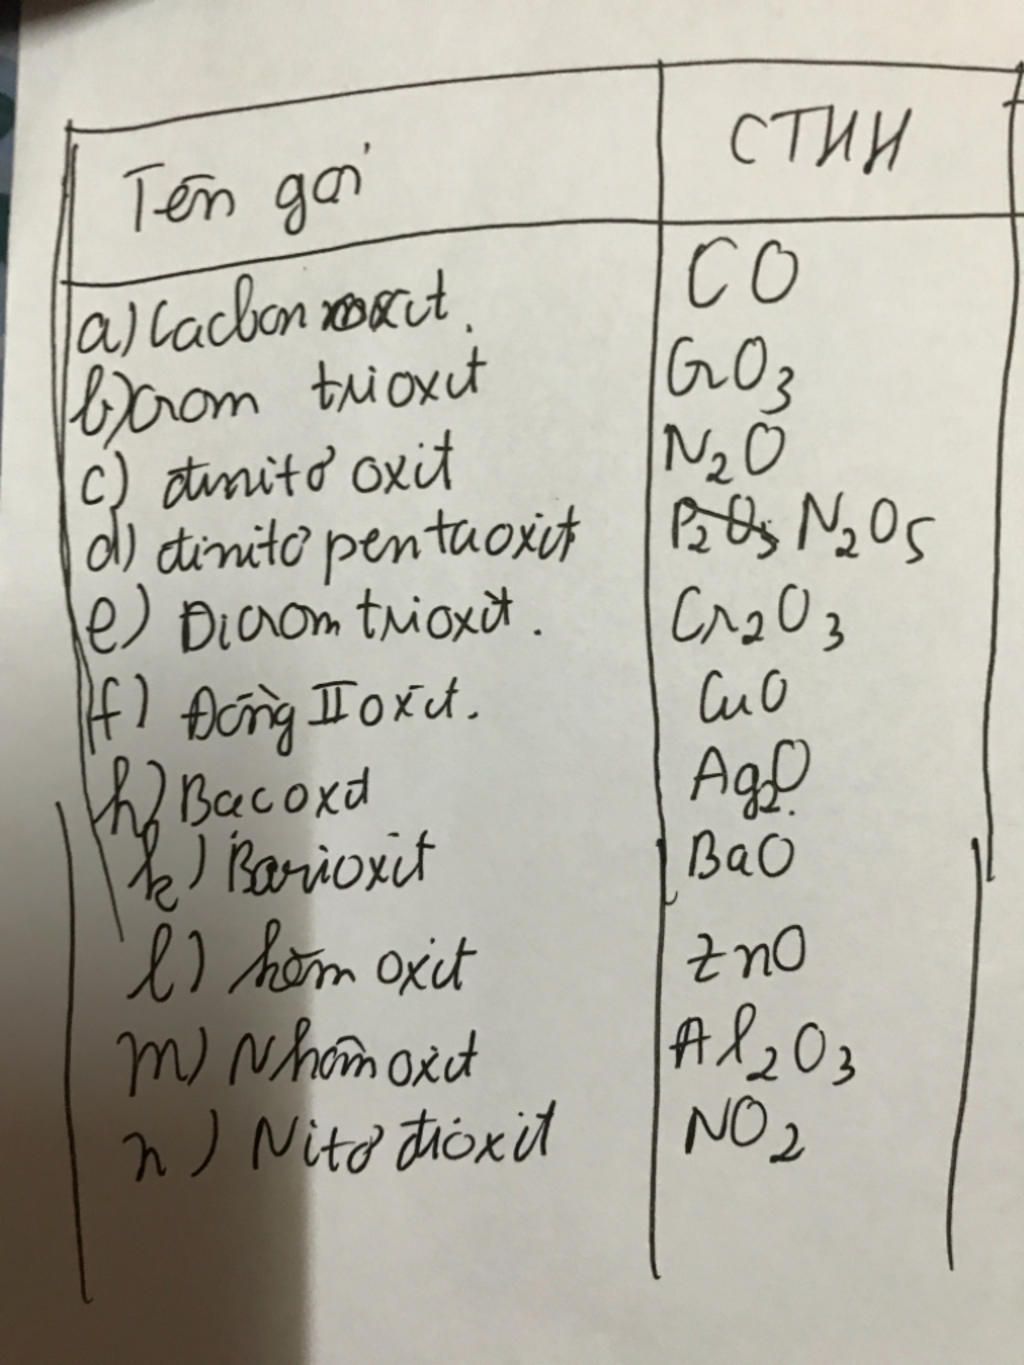 Tên gọi CTHH
a) Cacbon oxit. CO
b) Crom trioxit CrO3
c) đinitơ oxit N2O
d) đinitơ pentaoxit P2O5 N2O5
e) Đicrom trioxit. Cr2O3
f) Đồng II oxit. CuO
h) Bạc oxit Ag2O.
k) Bari oxit BaO
l) kẽm oxit ZnO
m) Nhôm oxit Al2O3
n) Nitơ đioxit NO2